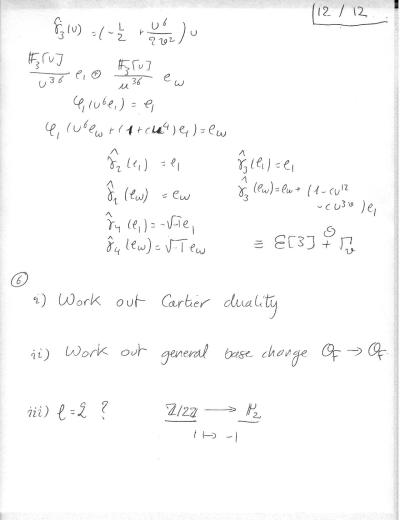 12 / 12
γ̂₃(u) = (-1/2 + u⁶/2v²) u
F₃[u]/u³⁶ e₁ ⊕ F₃[u]/u³⁶ e_w
φ₁(u⁶e₁) = e₁
φ₁(u⁶e_w + (1+cu⁴)e₁) = e_w
γ̂₂(e₁) = e₁ γ̂₃(e₁) = e₁
γ̂₂(e_w) = e_w γ̂₃(e_w) = e_w + (1-cu¹²
γ̂₄(e₁) = -√-1 e₁ )e₁
γ̂₄(e_w) = √-1 e_w ≡ E[3]
⑥
i) Work out Cartier duality
ii) Work out general base change O_F → O_F
iii) ℓ=2 ? Z/2Z → μ₂
1 ↦ -1